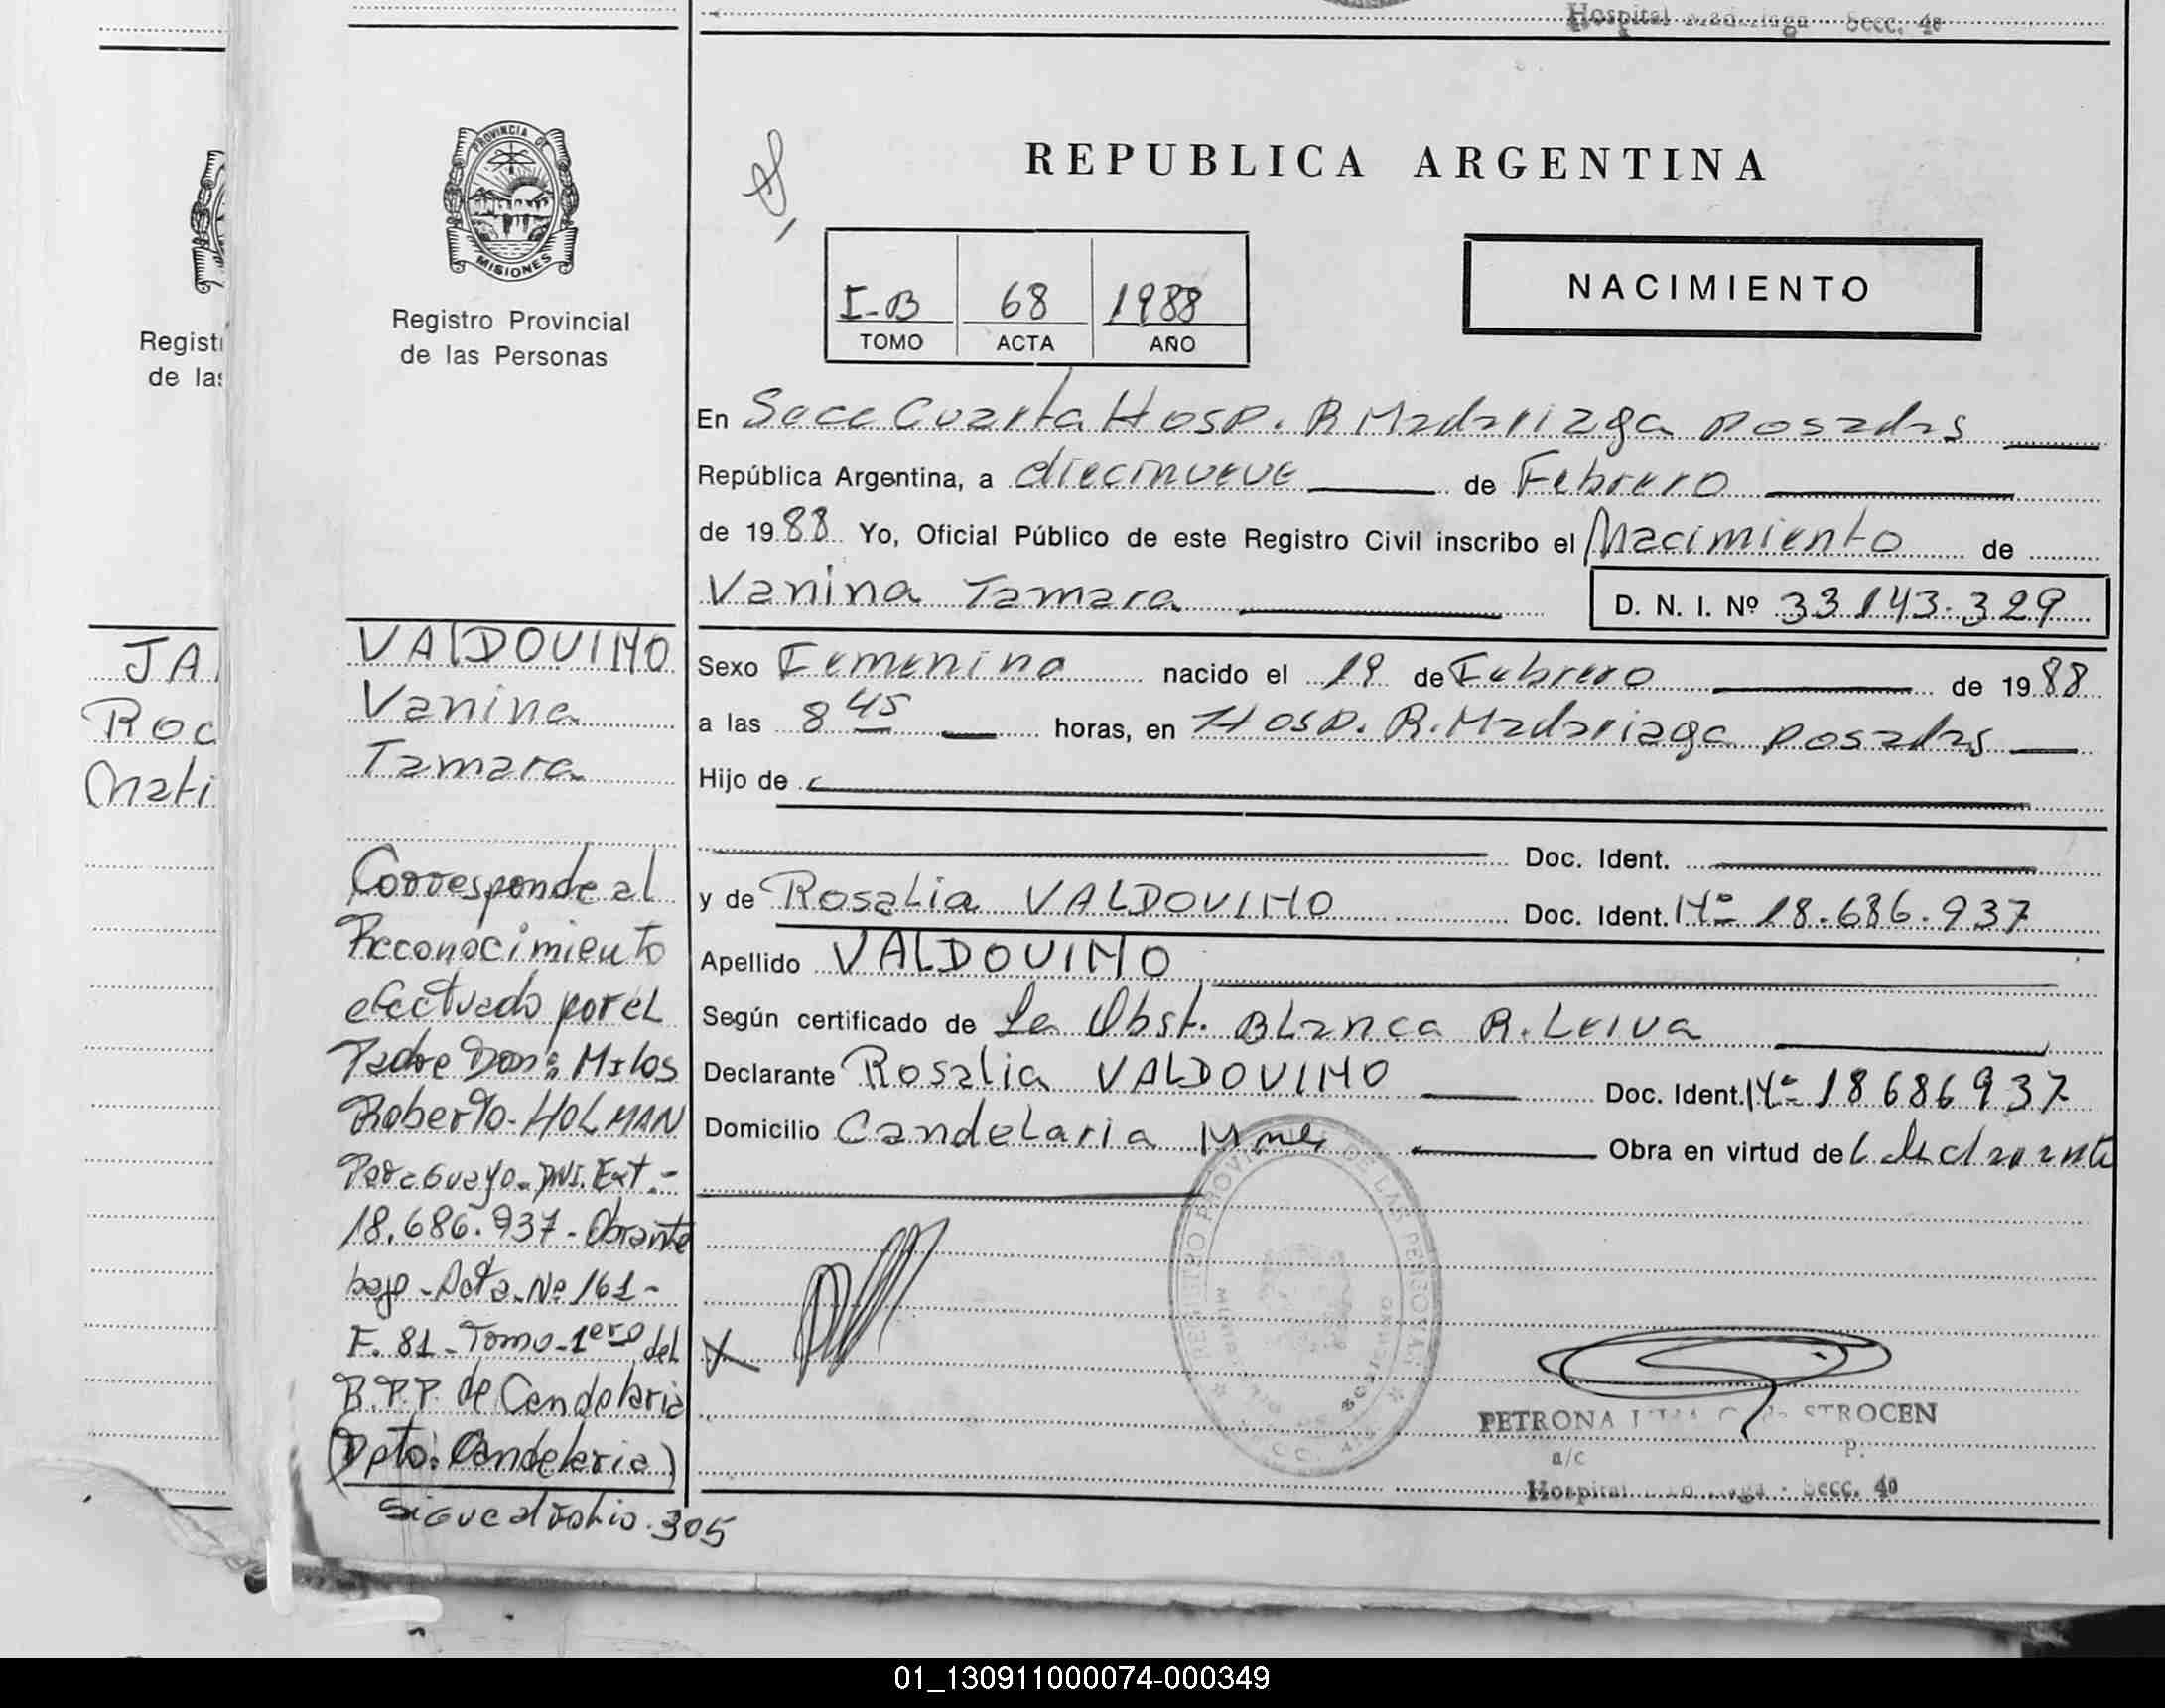 Hospital Secc. 4ª
PROVINCIA DE
MISIONES
Registro Provincial
de las Personas
Regist
de las
REPUBLICA ARGENTINA
NACIMIENTO
I-B 68 1988
TOMO ACTA AÑO
En Secc Cuarta Hosp. R Madariaga Posadas
República Argentina, a diecinueve de Febrero
de 1988 Yo, Oficial Público de este Registro Civil inscribo el Nacimiento de
Vanina Tamara D. N. I. Nº 33.143.329
Sexo Femenino nacido el 19 de Febrero de 1988
a las 8 45 horas, en Hosp. R. Madariaga Posadas
Hijo de
Doc. Ident.
y de Rosalia VALDOVINO Doc. Ident. Nº 18.686.937
Apellido VALDOVINO
Según certificado de La Obst. Blanca R. Leiva
Declarante Rosalia VALDOVINO Doc. Ident. Nº 18686937
Domicilio Candelaria Mnes Obra en virtud de l declarante
JA
Roc
Mati
VALDOVINO
Vanina
Tamara
Corresponde al
Reconocimiento
efectuado por el
Padre Don: Milos
Roberto-HOLMAN
Paraguayo. DNI. Ext.-
18.686.937-Obrante
bajo-Acta-Nº 161-
F. 81-Tomo-1ero del
R.P.P. de Candelaria
(Dpto: Candelaria)
Sigue al folio. 305
REGISTRO PROVINCIAL DE LAS PERSONAS
PETRONA STROCEN
a/c
Hospital Secc. 4ª
01_130911000074-000349